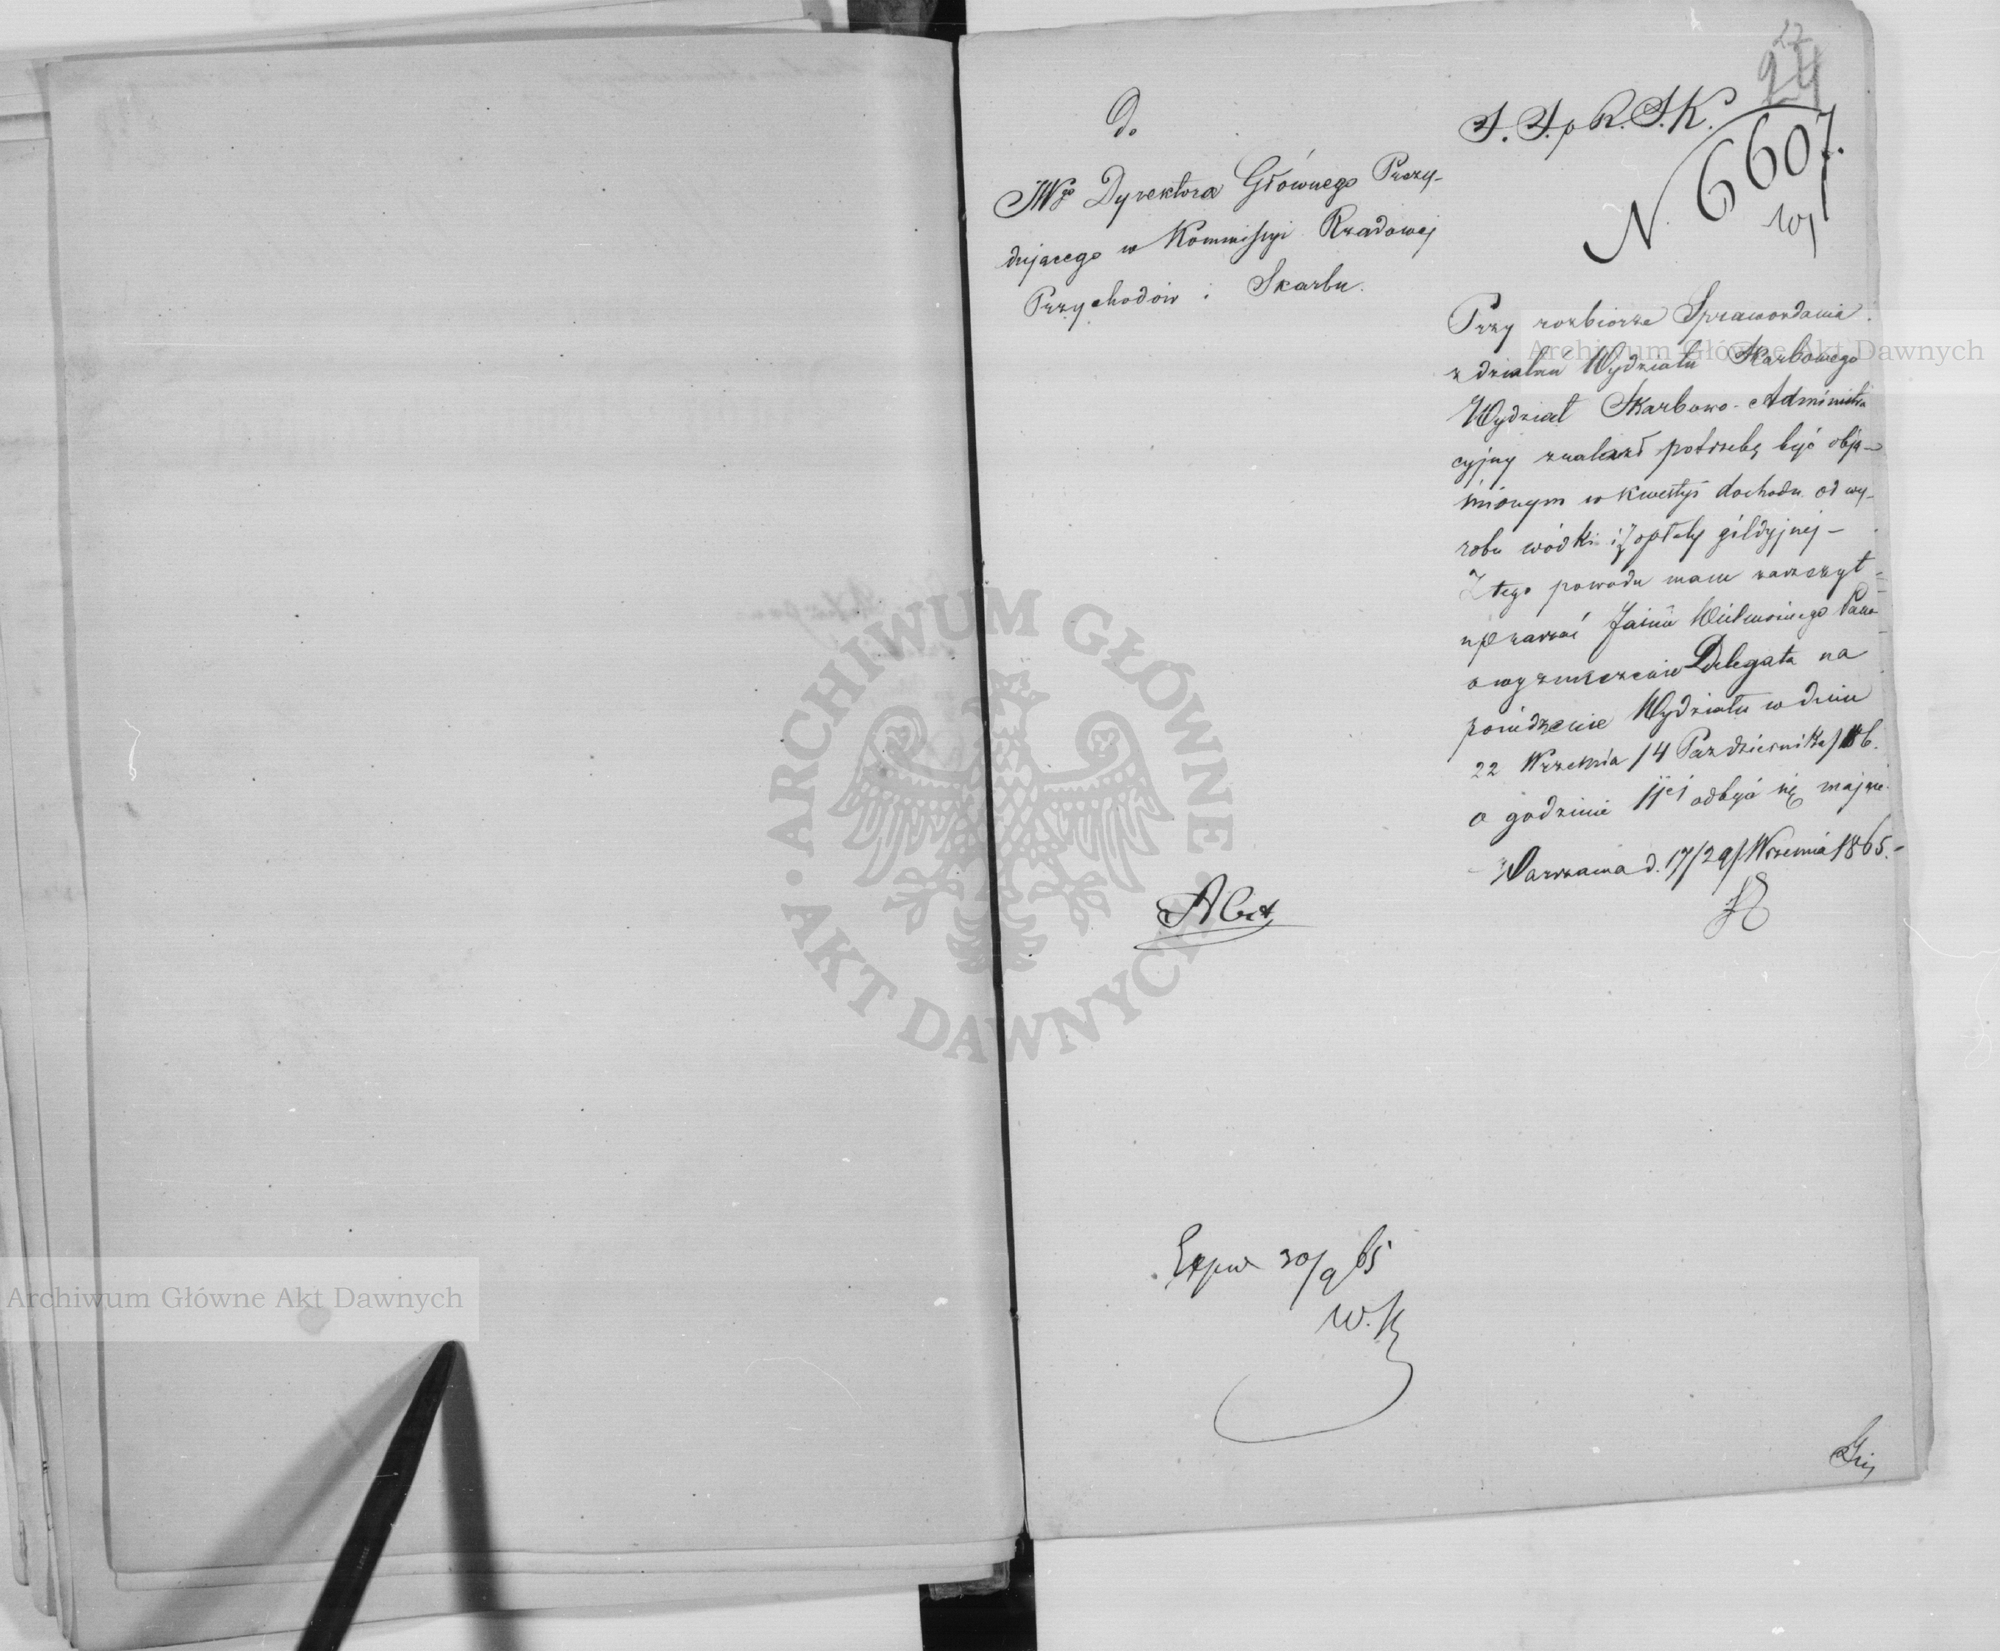 27
24
S. S. p R. S. K.
N. 6607.
Do
JWgo Dyrektora Głównego Prezy-
dującego w Kommissyi Rządowej
Przychodów i Skarbu.
Przy rozbiorze Sprawozdania
z działań Wydziału Skarbowego
Wydział Skarbowo-Administra
cyjny znalazł potrzebę być obja-
śnionym w kwestyi dochodu od wy-
robu wódki i z opłaty gildyjnej –
Z tego powodu mam zaszczyt
upraszać Jaśnie Wielmożnego Pana
o wyznaczenie Delegata na
posiedzenie Wydziału w dniu
22 Września /4 Października/ rb.
o godzinie 11ej odbyć się mające.
Warszawa d. 17/29/ Września 1865.
Expw 30/9 65
W. K
Archiwum Główne Akt Dawnych
Archiwum Główne Akt Dawnych
ARCHIWUM GŁÓWNE
AKT DAWNYCH